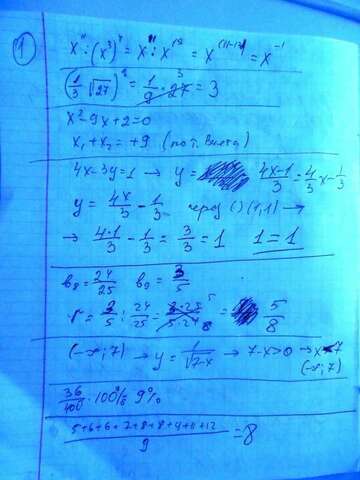 1
x¹¹ : (x³)⁴ = x¹¹ : x¹² = x⁽¹¹⁻¹²⁾ = x⁻¹
(1/3 √27)² = 1/9 · 27 = 3
x² - 9x + 2 = 0
x₁ + x₂ = +9 (по т. Виета)
4x - 3y = 1 → y = (4x-1)/3 = 4/3 x - 1/3
y = 4x/3 - 1/3 через () (1,1) →
→ 4·1/3 - 1/3 = 3/3 = 1 1 = 1
b₈ = 24/25 b₉ = 3/5
r = 3/5 : 24/25 = 3·25/5·24 = 5/8
(-∞; 7) → y = 1/√(7-x) → 7-x>0 → x<7
(-∞; 7)
36/400 · 100% 9%
(5+6+6+7+8+8+9+11+12)/9 = 8